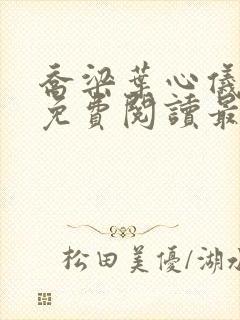 喬梁葉心儀
免費閱讀最
松田美優/湖水